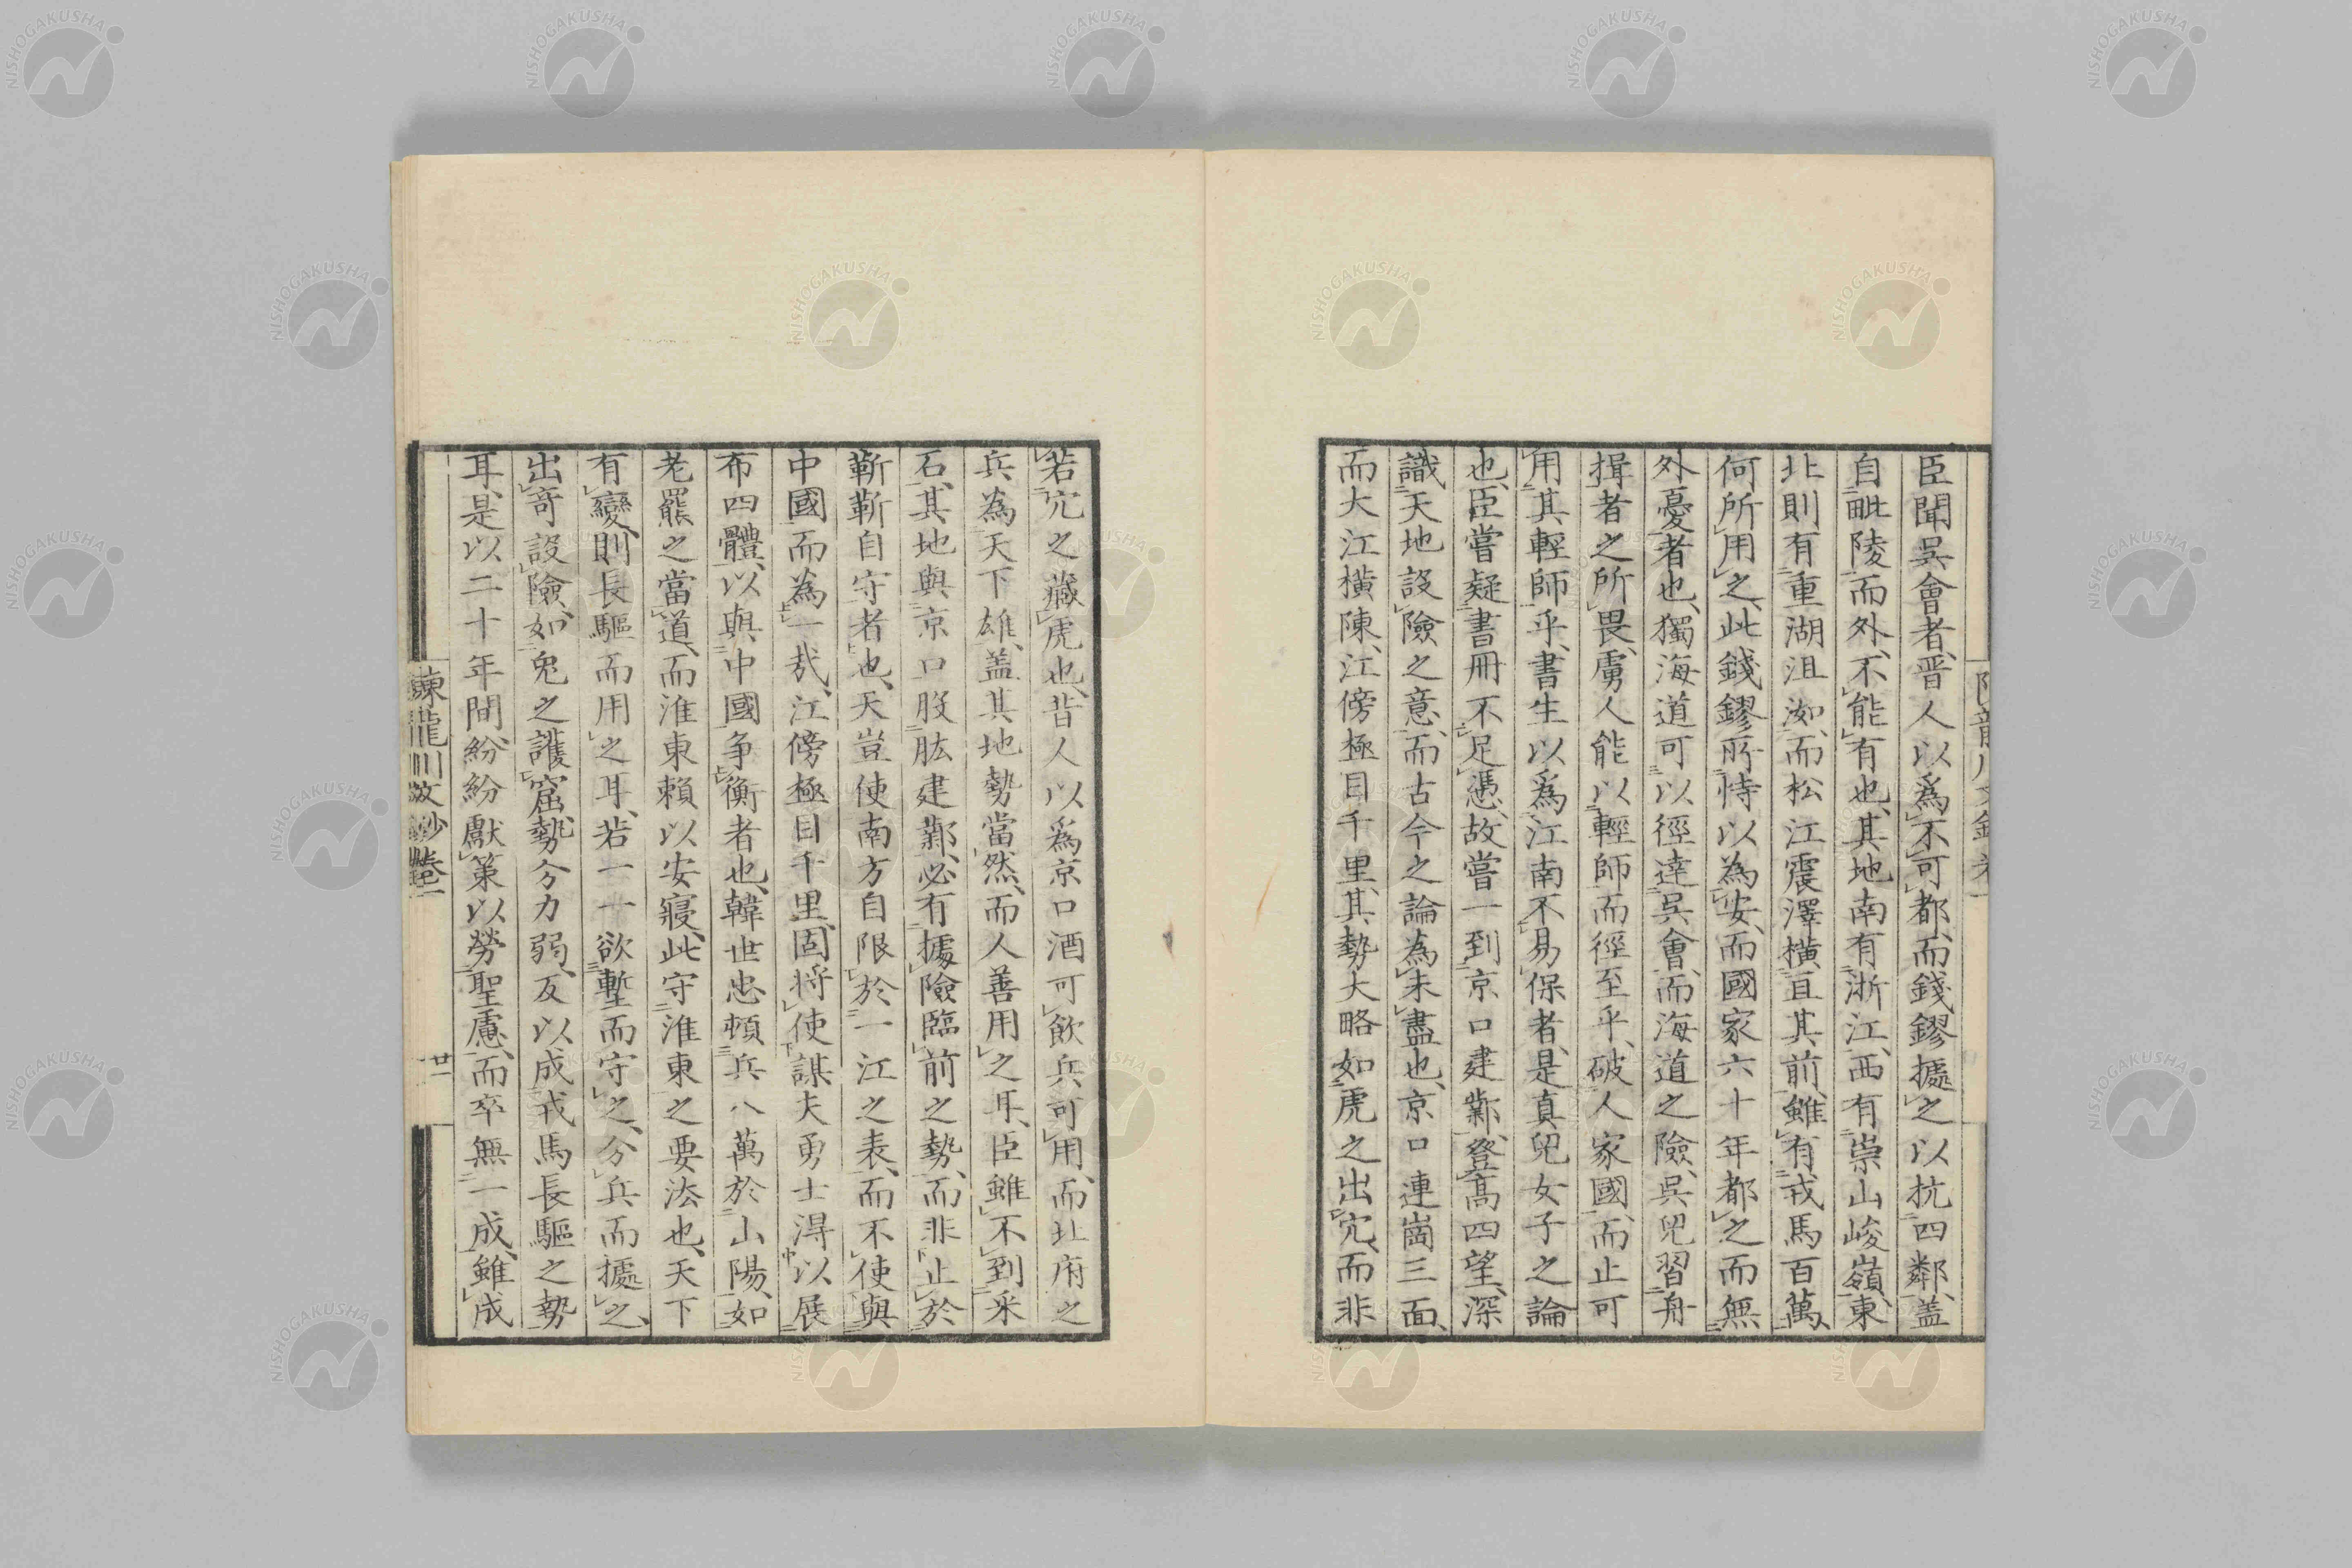 臣聞吳會者、晋人以爲不可都、而錢鏐據之以抗四鄰、蓋
自毗陵而外、不能有也、其地南有浙江、西有崇山峻嶺、東
北則有重湖沮洳、而松江震澤橫亘其前、雖有戎馬百萬、
何所用之、此錢鏐所恃以為安、而國家六十年都之而無
外憂者也、獨海道可以徑達吳會、而海道之險、吳兒習舟
揖者之所畏、虜人能以輕師而徑至乎、破人家國、而止可
用其輕師乎、書生以爲江南不易保者、是真兒女子之論
也、臣嘗疑書冊不足憑、故嘗一到京口建鄴、登高四望、深
識天地設險之意、而古今之論為未盡也、京口連崗三面、
而大江橫陳、江傍極目千里、其勢大略如虎之出穴、而非
若穴之藏虎也、昔人以爲京口酒可飲、兵可用、而北府之
兵為天下雄、蓋其地勢當然、而人善用之耳、臣雖不到采
石、其地與京口股肱建鄴、必有據險臨前之勢、而非止於
靳靳自守者也、天豈使南方自限於一江之表、而不使與
中國而為一哉、江傍極目千里、固將使謀夫勇士得以展
布四體、以與中國爭衡者也、韓世忠頓兵八萬於山陽、如
老羆之當道、而淮東賴以安寢、此守淮東之要法也、天下
有變、則長驅而用之耳、若一一欲塹而守之、分兵而據之、
出奇設險、如兔之護窟、勢分力弱、反以成戎馬長驅之勢
耳、是以二十年間、紛紛獻策以勞聖慮、而卒無一成、雖成
陳龍川文鈔卷一
廿一
NISHOGAKUSHA